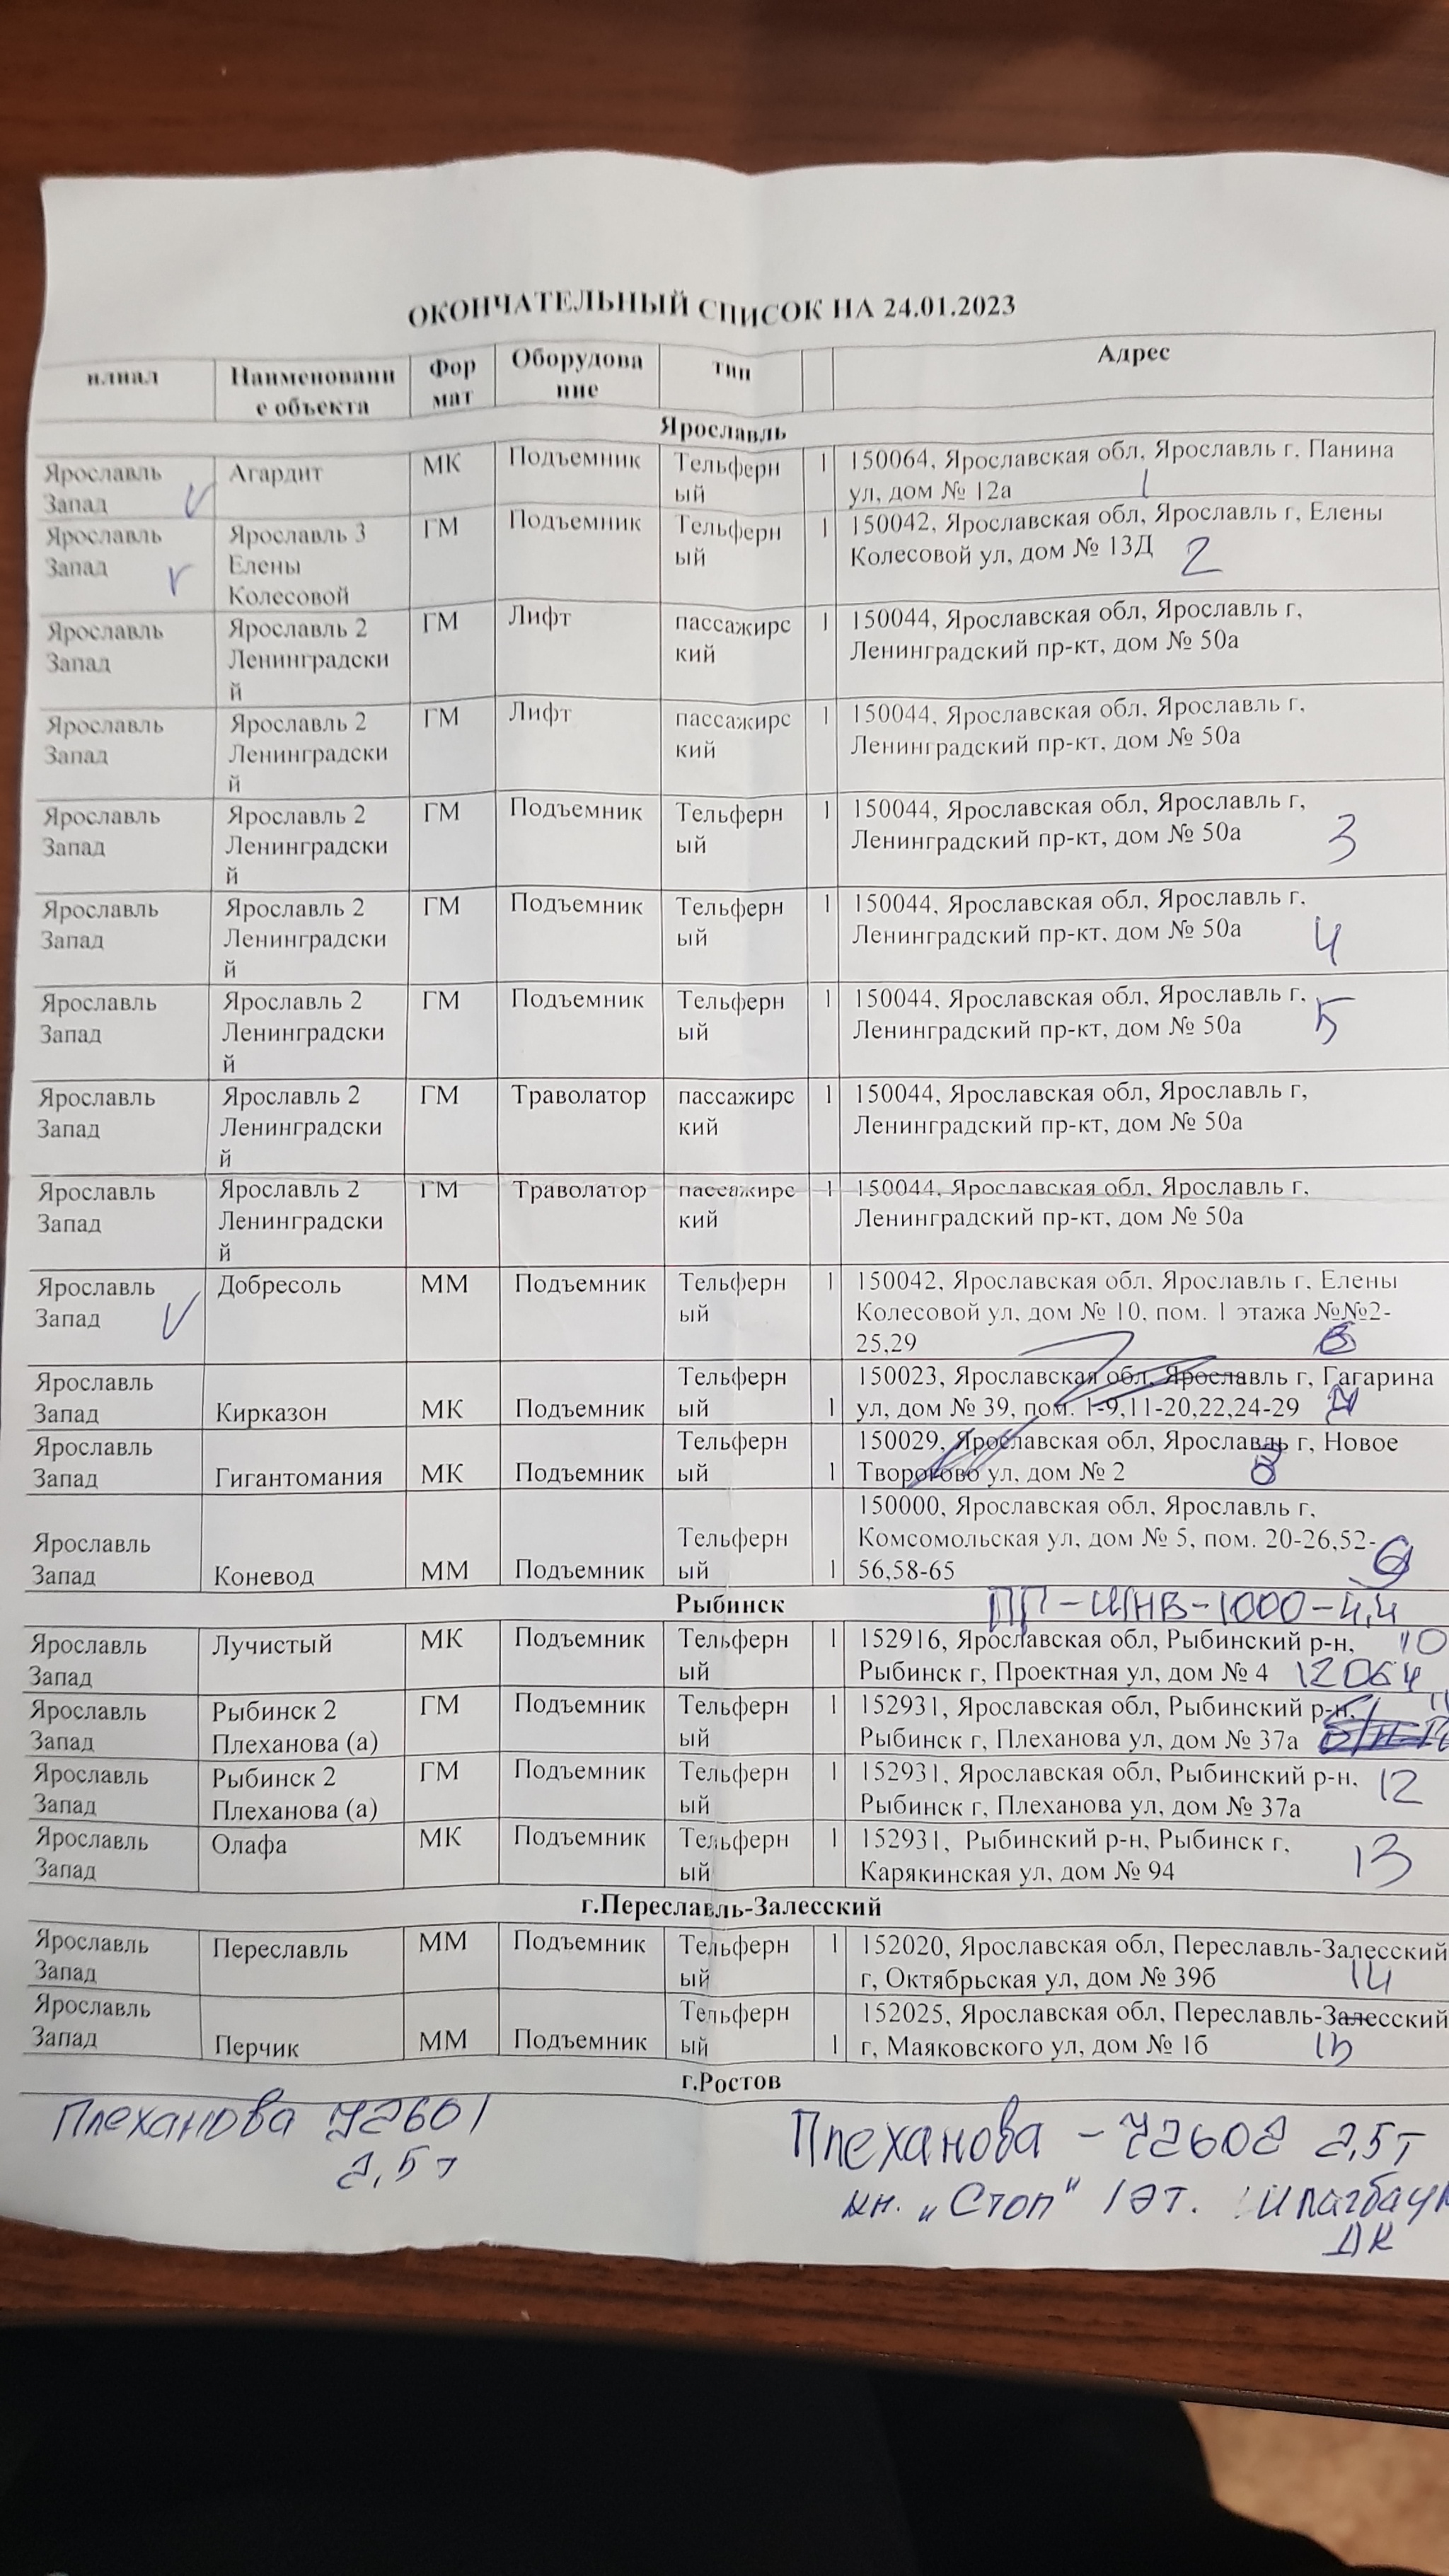 ОКОНЧАТЕЛЬНЫЙ СПИСОК НА 24.01.2023
илиал Наименовани Фор Оборудова тип Адрес
е объекта мат ние
Ярославль
Ярославль Агардит МК Подъемник Тельферн 1 150064, Ярославская обл, Ярославль г, Панина
Запад V ый ул, дом № 12а 1
Ярославль Ярославль 3 ГМ Подъемник Тельферн 1 150042, Ярославская обл, Ярославль г, Елены
Запад V Елены ый Колесовой ул, дом № 13Д 2
Колесовой
Ярославль Ярославль 2 ГМ Лифт пассажирс 1 150044, Ярославская обл, Ярославль г,
Запад Ленинградски кий Ленинградский пр-кт, дом № 50а
й
Ярославль Ярославль 2 ГМ Лифт пассажирс 1 150044, Ярославская обл, Ярославль г,
Запад Ленинградски кий Ленинградский пр-кт, дом № 50а
й
Ярославль Ярославль 2 ГМ Подъемник Тельферн 1 150044, Ярославская обл, Ярославль г,
Запад Ленинградски ый Ленинградский пр-кт, дом № 50а 3
й
Ярославль Ярославль 2 ГМ Подъемник Тельферн 1 150044, Ярославская обл, Ярославль г,
Запад Ленинградски ый Ленинградский пр-кт, дом № 50а 4
й
Ярославль Ярославль 2 ГМ Подъемник Тельферн 1 150044, Ярославская обл, Ярославль г,
Запад Ленинградски ый Ленинградский пр-кт, дом № 50а 5
й
Ярославль Ярославль 2 ГМ Траволатор пассажирс 1 150044, Ярославская обл, Ярославль г,
Запад Ленинградски кий Ленинградский пр-кт, дом № 50а
й
Ярославль Ярославль 2 ГМ Траволатор пассажирс 1 150044, Ярославская обл, Ярославль г,
Запад Ленинградски кий Ленинградский пр-кт, дом № 50а
й
Ярославль Добресоль ММ Подъемник Тельферн 1 150042, Ярославская обл, Ярославль г, Елены
Запад V ый Колесовой ул, дом № 10, пом. 1 этажа №№2-
25,29
Ярославль Тельферн 150023, Ярославская обл, Ярославль г, Гагарина
Запад Кирказон МК Подъемник ый 1 ул, дом № 39, пом. 1-9,11-20,22,24-29
Ярославль Тельферн 150029, Ярославская обл, Ярославль г, Новое
Запад Гигантомания МК Подъемник ый 1 Творогово ул, дом № 2 8
150000, Ярославская обл, Ярославль г,
Ярославль Тельферн Комсомольская ул, дом № 5, пом. 20-26,52-
Запад Коневод ММ Подъемник ый 1 56,58-65 9
Рыбинск ПП-ШНВ-1000-4,4
Ярославль Лучистый МК Подъемник Тельферн 1 152916, Ярославская обл, Рыбинский р-н, 10
Запад ый Рыбинск г, Проектная ул, дом № 4 12064
Ярославль Рыбинск 2 ГМ Подъемник Тельферн 1 152931, Ярославская обл, Рыбинский р-н, 11
Запад Плеханова (а) ый Рыбинск г, Плеханова ул, дом № 37а
Ярославль Рыбинск 2 ГМ Подъемник Тельферн 1 152931, Ярославская обл, Рыбинский р-н, 12
Запад Плеханова (а) ый Рыбинск г, Плеханова ул, дом № 37а
Ярославль Олафа МК Подъемник Тельферн 1 152931, Рыбинский р-н, Рыбинск г,
Запад ый Карякинская ул, дом № 94 13
г.Переславль-Залесский
Ярославль Переславль ММ Подъемник Тельферн 1 152020, Ярославская обл, Переславль-Залесский
Запад ый г, Октябрьская ул, дом № 39б 14
Ярославль Тельферн 152025, Ярославская обл, Переславль-Залесский
Запад Перчик ММ Подъемник ый 1 г, Маяковского ул, дом № 1б 15
г.Ростов
Плеханова 72601 Плеханова - 72602 2,5т
2,5т кн. "Стоп" 1 эт.